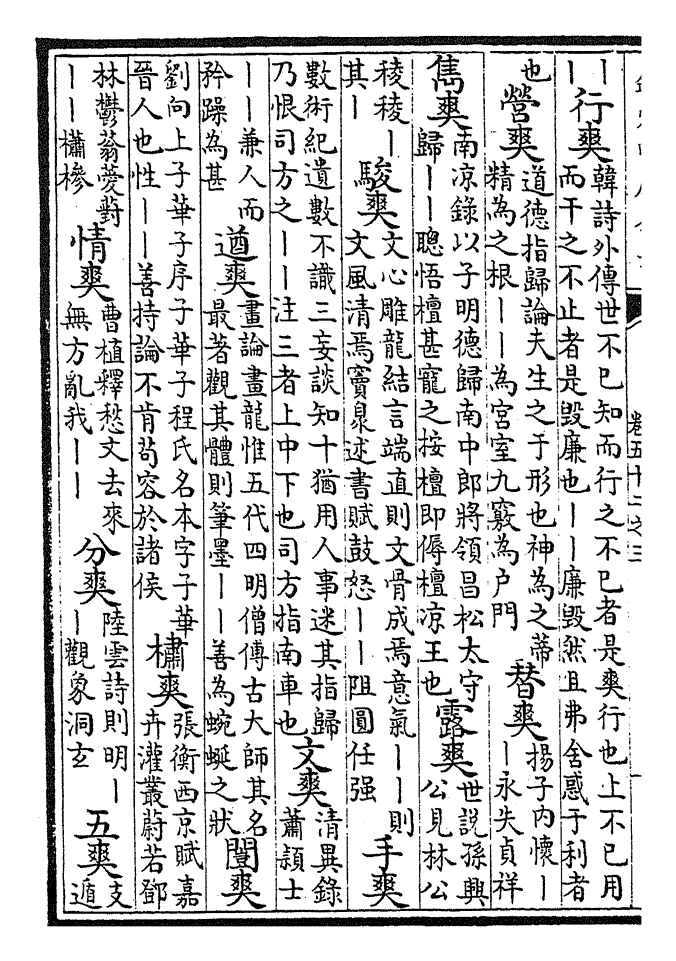 卷五十二之三
｜｜行爽韓詩外傳世不已知而行之不已者是爽行也上不已用而干之不止者是毀廉也｜｜廉毀然且弗舍惑于利者
也營爽道德指歸論夫生之于形也神為之蒂精為之根｜｜為宮室九竅為户門替爽揚子内懷｜｜永失貞祥
雋爽南凉錄以子明德歸南中郎將領昌松太守歸｜｜聰悟檀甚寵之按檀即傉檀凉王也露爽世說孫興公見林公
稜稜｜其｜駿爽文心雕龍結言端直則文骨成焉意氣｜｜則文風清焉竇臮述書賦鼓怒｜｜阻圓任强手爽
數術紀遺數不識三妄談知十猶用人事迷其指歸乃恨司方之｜｜注三者上中下也司方指南車也文爽清異錄蕭頴士
｜｜兼人而矜躁為甚遒爽畫論畫龍惟五代四明僧傳古大師其名最著觀其體則筆墨｜｜善為蜿蜒之狀闓爽
劉向上子華子序子華子程氏名本字子華晉人也性｜｜善持論不肯苟容於諸侯橚爽張衡西京賦嘉卉灌叢蔚若鄧
林鬱蓊薆薱｜｜橚槮情爽曹植釋愁文去來無方亂我｜｜分爽陸雲詩則明｜｜觀象洞玄五爽支遁